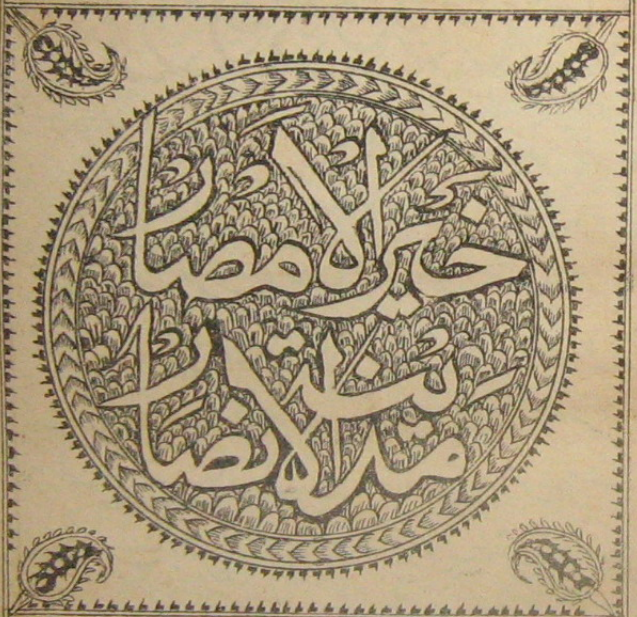 خیر الامصار
مدینة الانصار